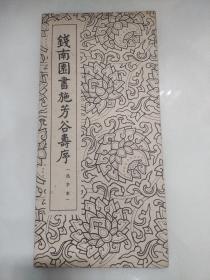 錢南園書施芳谷壽序